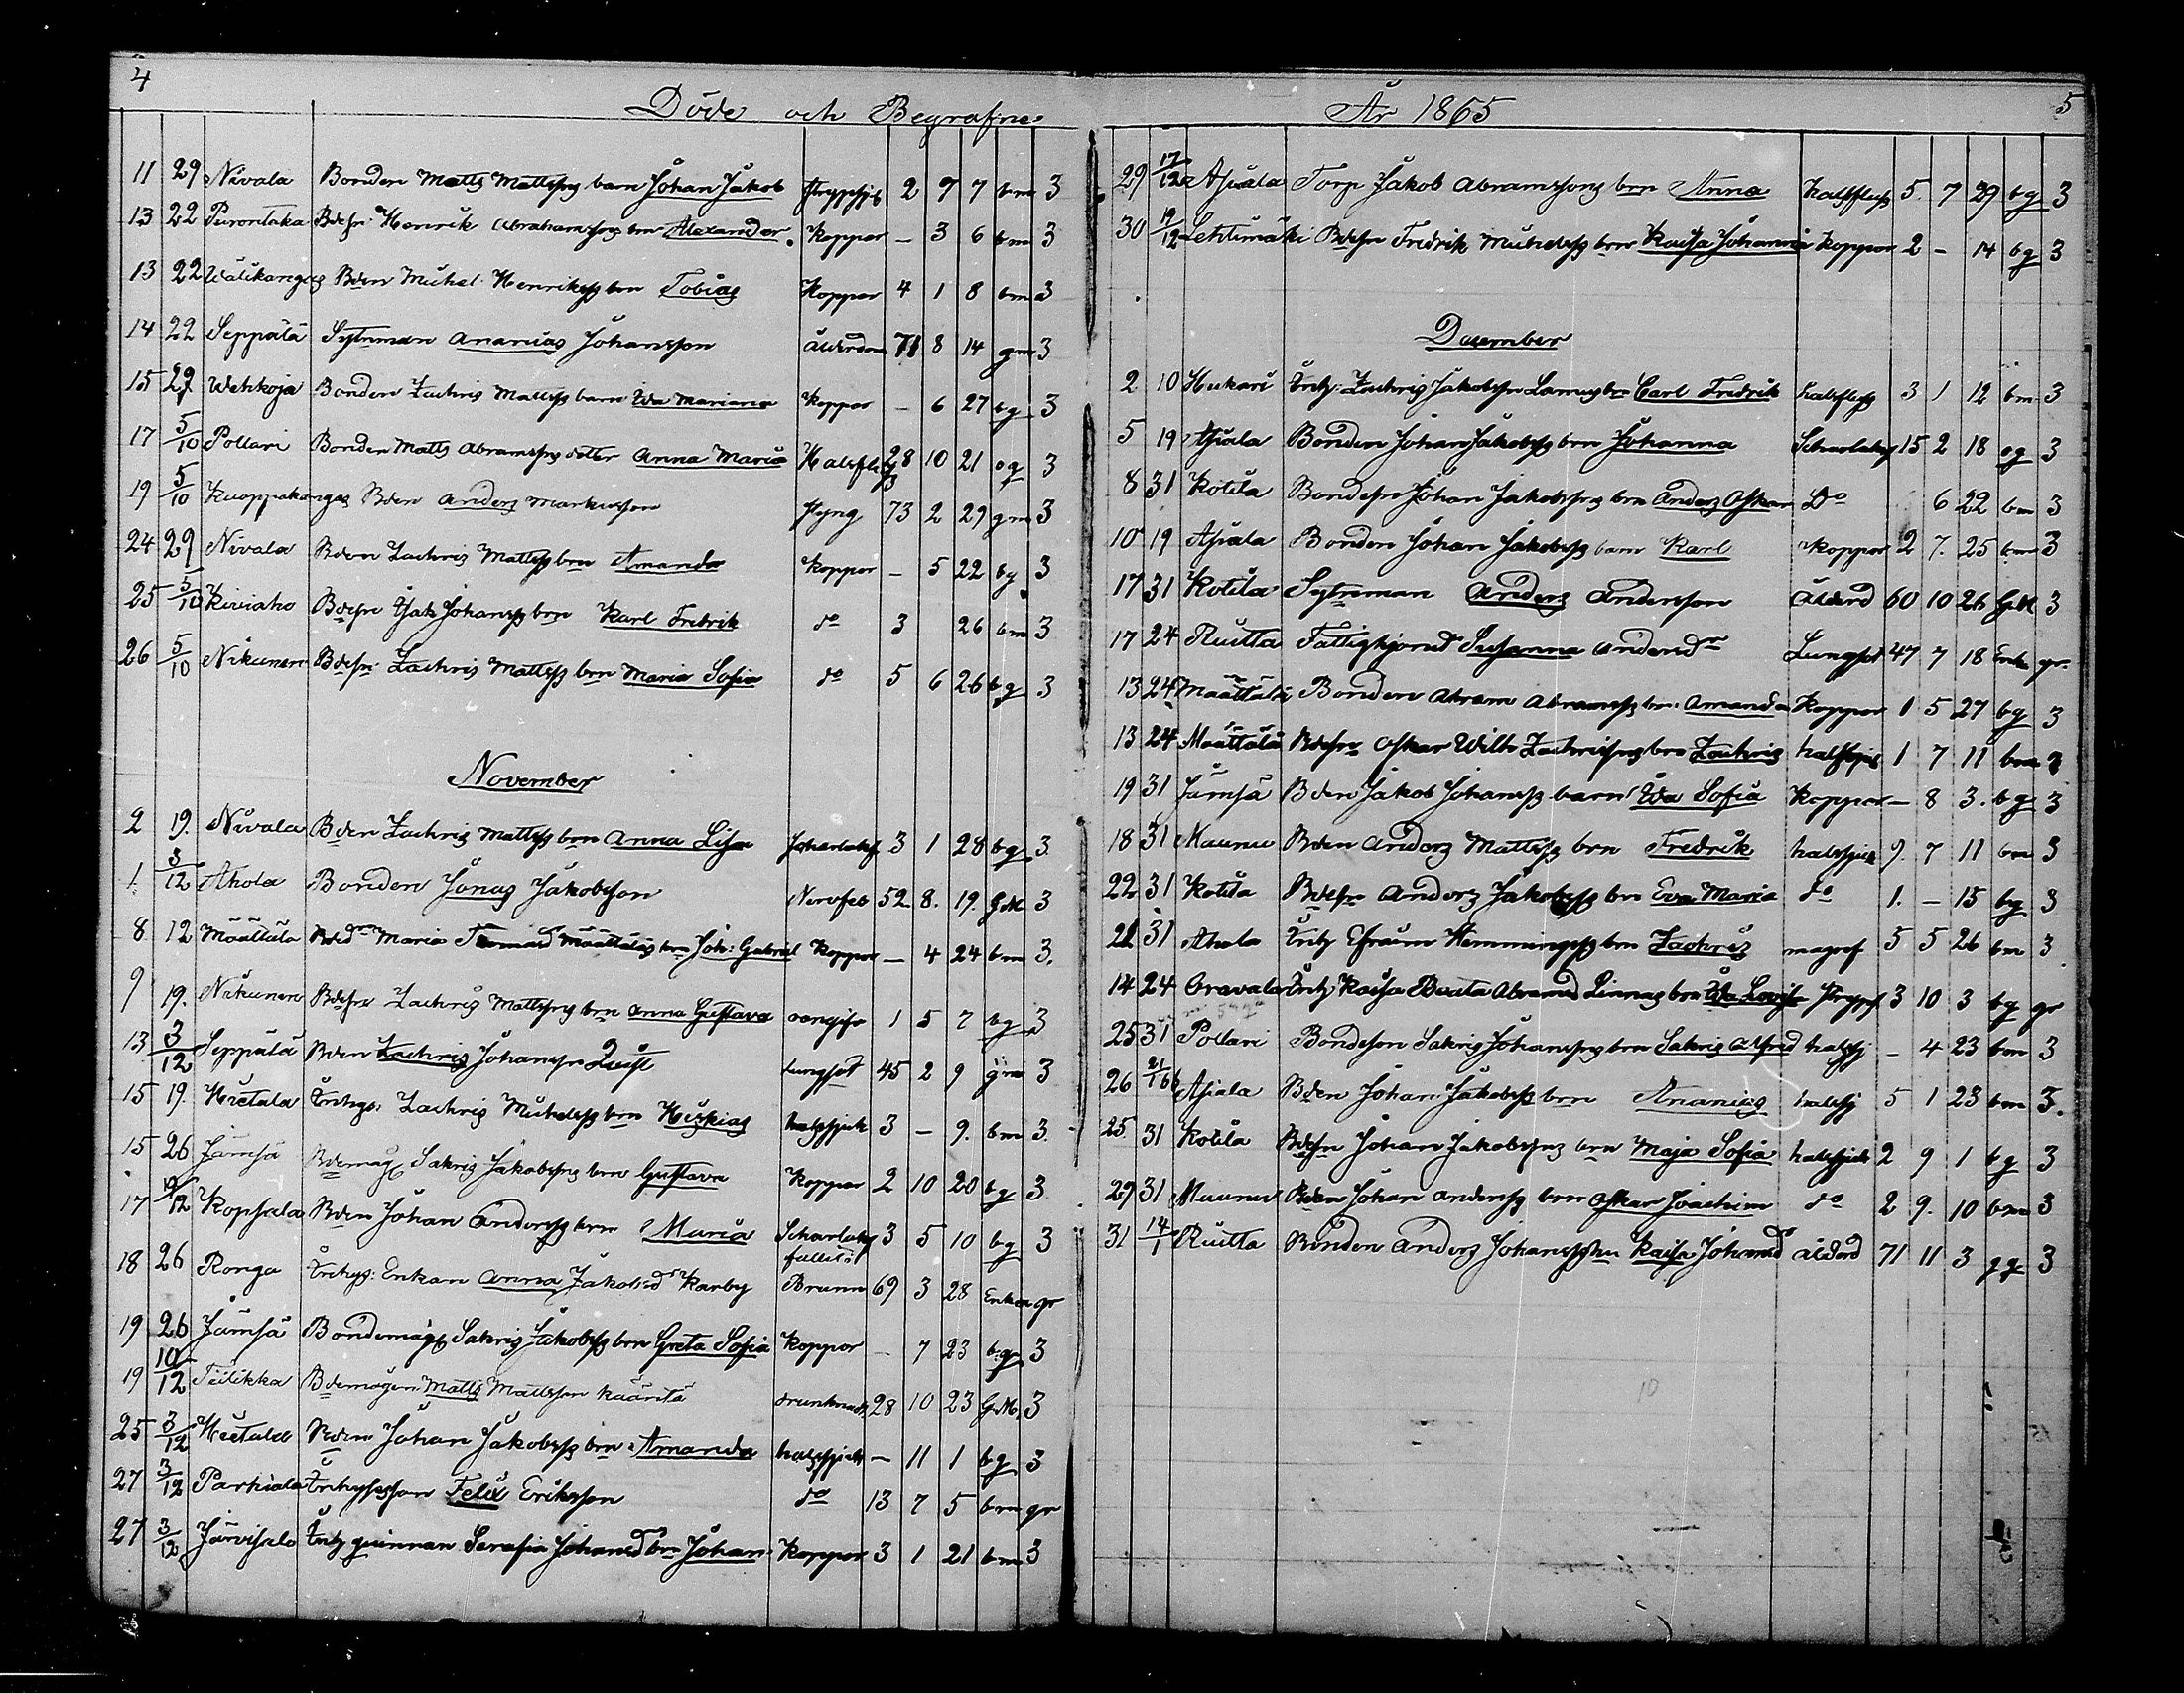 4
Döde och Begrafne
11 29 Nivala Bonden Matts Mattssons barn Johan Jakob 2 9 7 bm 3
13 22 Purontaka Bdesn Henrik Abrahamssons brn Alexander. Koppor — 3 6 bm 3
13 22 Wälikangas Bden Michel Henrikss brn Tobias Koppor 4 1 8 bm 3
14 22 Seppälä Sytnman Ananias Johansson ålderdom 71 8 14 gm 3
15 29 Wehkoja Bonden Zachris Mattss barn Ida Mariana Koppor — 6 27 bg 3
17 5/10 Pollari Bonden Matts Abramssons dotter Anna Maria Halsfluss 28 10 21 og 3
19 5/10 Kuoppakangas Bden Anders Markusson styng 73 2 29 gm 3
24 29 Nivala Bden Zachris Mattss brn Amanda Koppor — 5 22 bg 3
25 5/10 Kiviaho Bdesn Isak Johanss brn Karl Fredrik do 3 26 bm 3
26 5/10 Nikunen Bdesn Zachris Mattss brn Maria Sofia do 5 6 26 bg 3
November
2 19. Nivala Bden Zachris Mattss brn Anna Lisa scharlakf 3 1 28 bg 3.
1. 3/12 Ahola Bonden Jonas Jakobsson Nervfeb 52 8. 19. GM 3
8 12 Määttälä Maria Määttäläs brn Joh: Gabriel Koppor — 4 24 bm 3.
9 19. Nikunen Bdesn Zachris Mattssons brn Anna Gustava 1 5 7 bg 3
13 3/12 Seppälä Bden Zachris Johansson Quist lungsot 45 2 9 gm 3
15 19. Hietala Inhys: Zachris Michelss brn Hiskias halssjuk 3 — 9. bm 3.
15 26 Jämsä Bdemåg Sakris Jakobssons brn Gustava Koppor 2 10 20 bg 3
17 10/12 Kopsala Bden Johan Anderss brn Maria Scharlakf 3 5 10 bg 3
18 26 Ronga Inhys: Enkan Anna Jakobsd Karby fallit i Brunn 69 3 28 Enka gr
19 26 Jämsä Bondemåg Sakris Jakobss brn Greta Sofia Koppor — 7 23 bg 3
19 10/12 Teilikka Bdemågen Matts Mattsson Kääntä drunknade 28 10 23 GM 3
25 3/12 Hietala Bden Johan Jakobss brn Amanda halssjuk — 11 1 bg 3
27 3/12 Parhiala Inhysesson Felix Eriksson do 13 7 5 bm gr
27 3/12 Järvisalo Inh qvinnan Serafia Johansd brn Johan Koppor 3 1 21 bm 3
År 1865 5
29 17/12 Asiala Torp Jakob Abramssons brn Anna halsfluss 5. 7 29 bg 3
30 19/12 Lehtimäki Bdesn Fredrik Michelss brn Kaisa Johanna Koppor 2 — 14 bg 3
December
2 10 Hukari Inh: Zachris Jakobsson brn Carl Fredrik halsfluss 3 1 12 bm 3
5 19 Asiala Bonden Johan Jakobss brn Johanna Scharlakf 15 2 18 og 3
8 31 Kotila Bondesn Johan Jakobssons brn Anders Oskar Do 6 22 bm 3
10 19 Asiala Bonden Johan Jakobss barn Karl Koppor 2 7. 25 bm 3
17 31 Kotila Sytnman Anders Andersson ålderd 60 10 26 GM 3
17 24 Ruitta Fattighjond Susanna Andersdr Lungsot 47 7 18 Enka gr.
13 24 Määttälä Bonden Abram Abramss brn Amanda Koppor 1 5 27 bg 3
13 24 Määttälä Bdesn Oskar Wilh Zachrissons brn Zachris halssjuk 1 7 11 bm 3
19 31 Jämsä Bden Jakob Johanss barn Ida Sofia Koppor — 8 3. bg 3
18 31 Maunu Bden Anders Mattss brn Fredrik halssjuk 9. 7 11 bm 3
22 31 Kotila Bdesn Anders Jakobss brn Eva Maria do 1. — 15 bg 3
21 31 Ahola Inh Efraim Hemmingss brn Zachris magref 5 5 26 bm 3
14 24 Oravala Inh Kaisa Beata Abramsd Linnas brn Ida Lovisa strypsj 3 10 3 bg gr
25 31 Pollari Bondeson Sakris Johanssons brn Sakris Alfred halssj — 4 23 bm 3
26 21/1 66 Asiala Bden Johan Jakobss brn Ananias halssj 5 1 23 bm 3.
25. 31 Kotila Bdesn Johan Jakobssons brn Maja Sofia halssjuk 2 9 1 bg 3
29 31 Maunu Bden Johan Anderss brn Oskar Joachim do 2 9. 10 bm 3
31 14/1 Ruitta Bonden Anders Johanssons hu Kaisa Johansd ålderd 71 11 3 gg 3
10